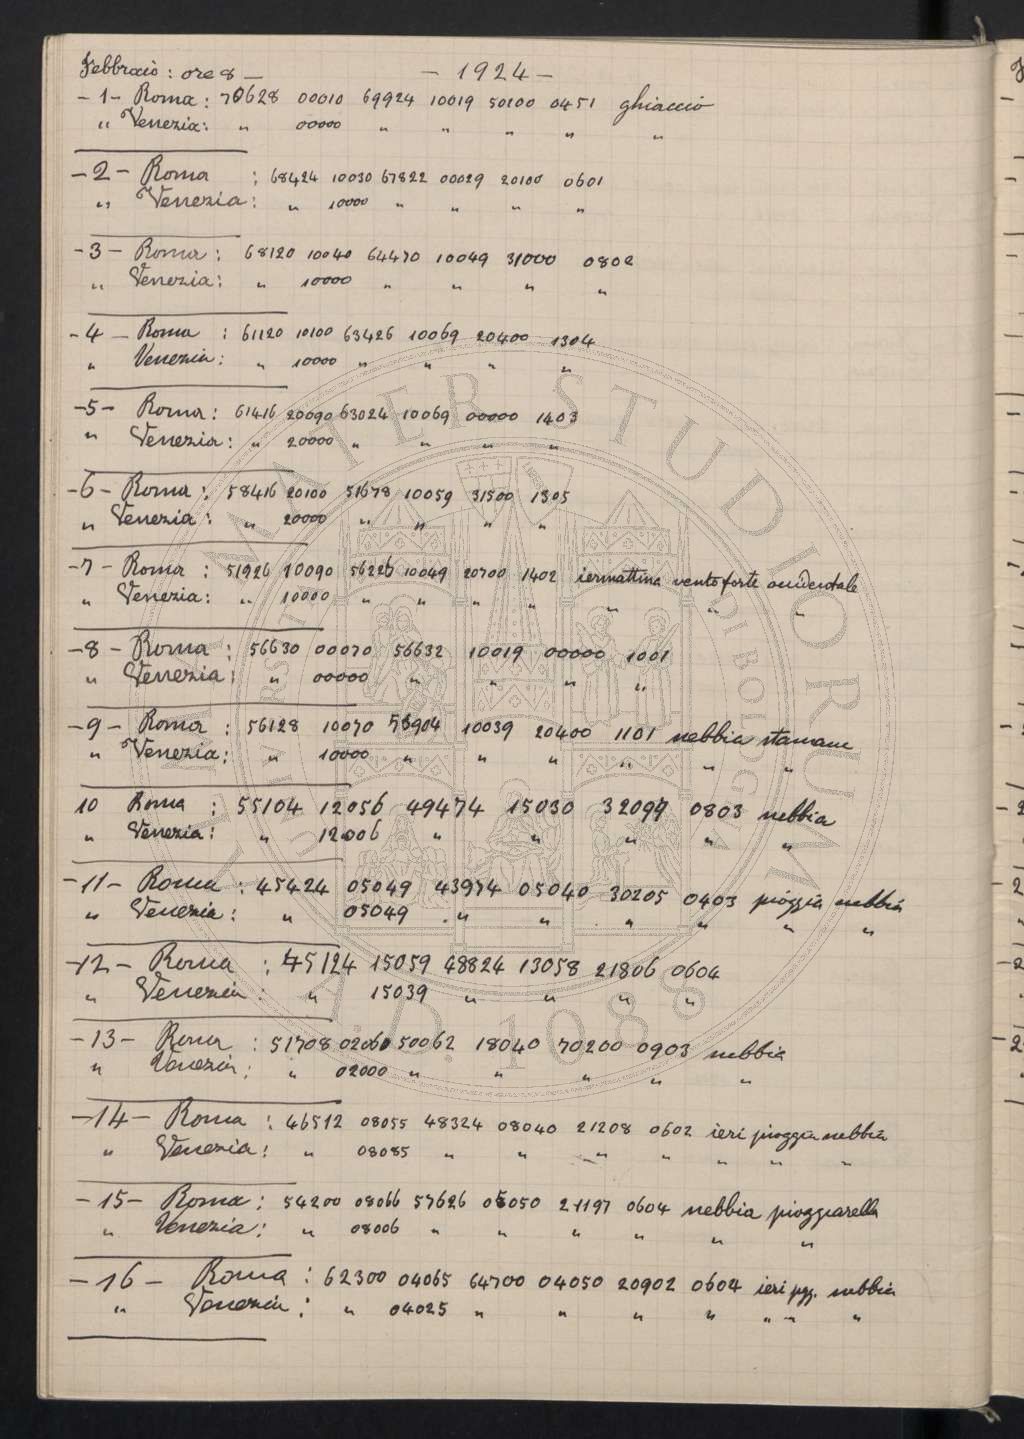 Febbraio : ore 8 — — 1924 —
- 1 - Roma : 70628 00010 69924 10019 50100 0451 ghiaccio
" Venezia : " 00000 " " " " "
- 2 - Roma : 68424 10030 67822 00029 20100 0601
" Venezia : " 10000 " " " "
- 3 - Roma : 68120 10040 64470 10049 31000 0802
" Venezia : " 10000 " " " "
- 4 - Roma : 61120 10100 63426 10069 20400 1304
" Venezia : " 10000 " " " "
- 5 - Roma : 61416 20090 63024 10069 00000 1403
" Venezia : " 20000 " " " "
- 6 - Roma : 58416 20100 51678 10059 31500 1305
" Venezia : " 20000 " " " "
- 7 - Roma : 51926 10090 56226 10049 20700 1402 iermattina vento forte occidentale
" Venezia : " 10000 " " " " " " "
- 8 - Roma : 56630 00070 56632 10019 00000 1001
" Venezia : " 00000 " " " "
- 9 - Roma : 56128 10070 58904 10039 20400 1101 nebbia stamane
" Venezia : " 10000 " " " " " "
10 Roma : 55104 12056 49474 15030 32097 0803 nebbia
" Venezia : " 12006 " " " " "
- 11 - Roma : 45424 05049 43974 05040 30205 0403 pioggia nebbia
" Venezia : " 05049 " " " " " "
- 12 - Roma : 45124 15059 48824 13058 21806 0604
" Venezia : " 15039 " " " "
- 13 - Roma : 51708 02060 50062 18040 70200 0903 nebbia
" Venezia : " 02000 " " " " "
- 14 - Roma : 46512 08055 48324 08040 21208 0602 ieri pioggia nebbia
" Venezia : " 08085 " " " " " " "
- 15 - Roma : 54200 08066 57626 05050 21197 0604 nebbia pioggiarella
" Venezia : " 08006 " " " " " "
- 16 - Roma : 62300 04065 64700 04050 20902 0604 ieri pgg. nebbia
" Venezia : " 04025 " " " " " " "
ALMA MATER STUDIORUM
A.D. 1088